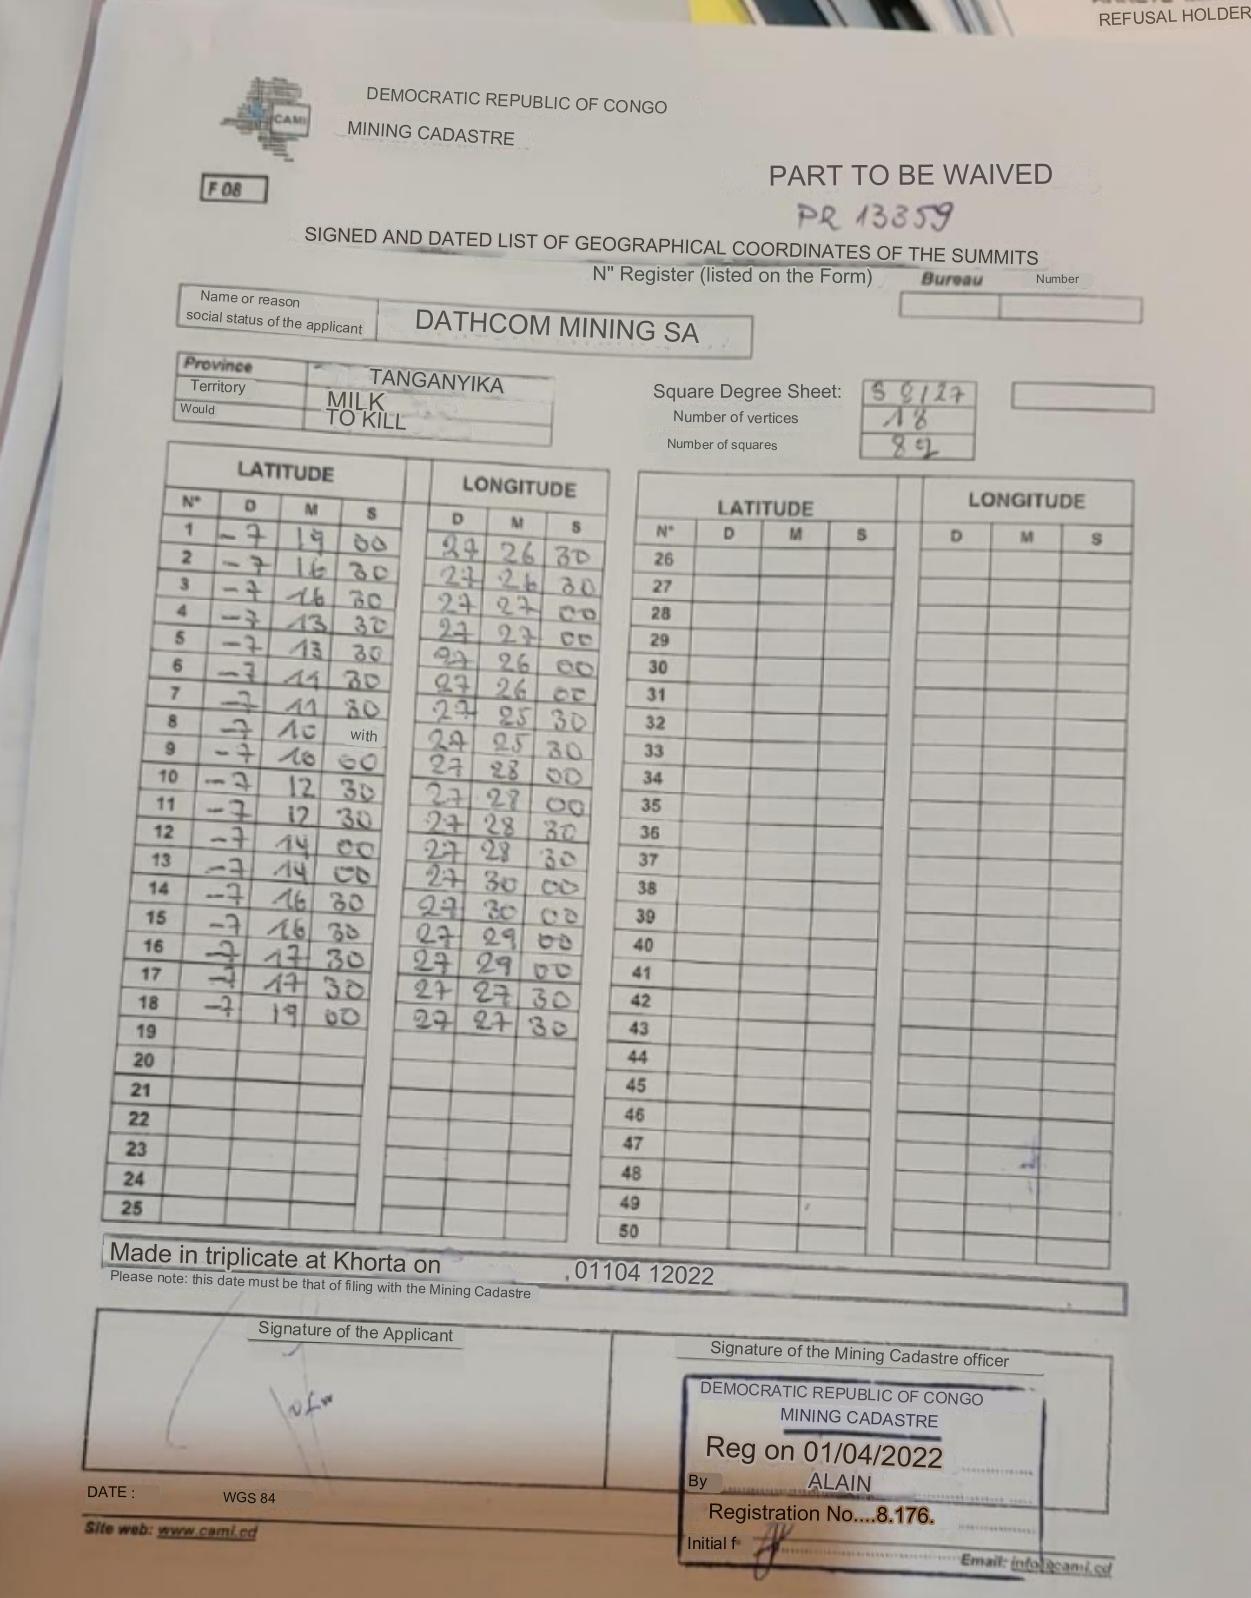 REFUSAL HOLDER
CAMI
DEMOCRATIC REPUBLIC OF CONGO
MINING CADASTRE
F 08
PART TO BE WAIVED
PR 13359
SIGNED AND DATED LIST OF GEOGRAPHICAL COORDINATES OF THE SUMMITS
N" Register (listed on the Form) Bureau Number
Name or reason
social status of the applicant DATHCOM MINING SA
Province TANGANYIKA
Territory MILK
Would TO KILL
Square Degree Sheet: S 8/27
Number of vertices 18
Number of squares 82
LATITUDE LONGITUDE
N° D M S D M S
1 -7 19 00 27 26 30
2 -7 16 30 27 26 30
3 -7 16 30 27 27 00
4 -7 13 30 27 27 00
5 -7 13 30 27 26 00
6 -7 11 30 27 26 00
7 -7 11 30 27 25 30
8 -7 10 with 27 25 30
9 -7 10 00 27 28 00
10 -7 12 30 27 28 00
11 -7 12 30 27 28 30
12 -7 14 00 27 28 30
13 -7 14 00 27 30 00
14 -7 16 30 27 30 00
15 -7 16 30 27 29 00
16 -7 17 30 27 29 00
17 -7 17 30 27 27 30
18 -7 19 00 27 27 30
19
20
21
22
23
24
25
LATITUDE LONGITUDE
N° D M S D M S
26
27
28
29
30
31
32
33
34
35
36
37
38
39
40
41
42
43
44
45
46
47
48
49
50
Made in triplicate at Khorta on ,01104 12022
Please note: this date must be that of filing with the Mining Cadastre
Signature of the Applicant
Signature of the Mining Cadastre officer
DEMOCRATIC REPUBLIC OF CONGO
MINING CADASTRE
Reg on 01/04/2022
By ALAIN
Registration No....8.176.
Initial f
DATE : WGS 84
Site web: www.cami.cd
Email: info@cami.cd